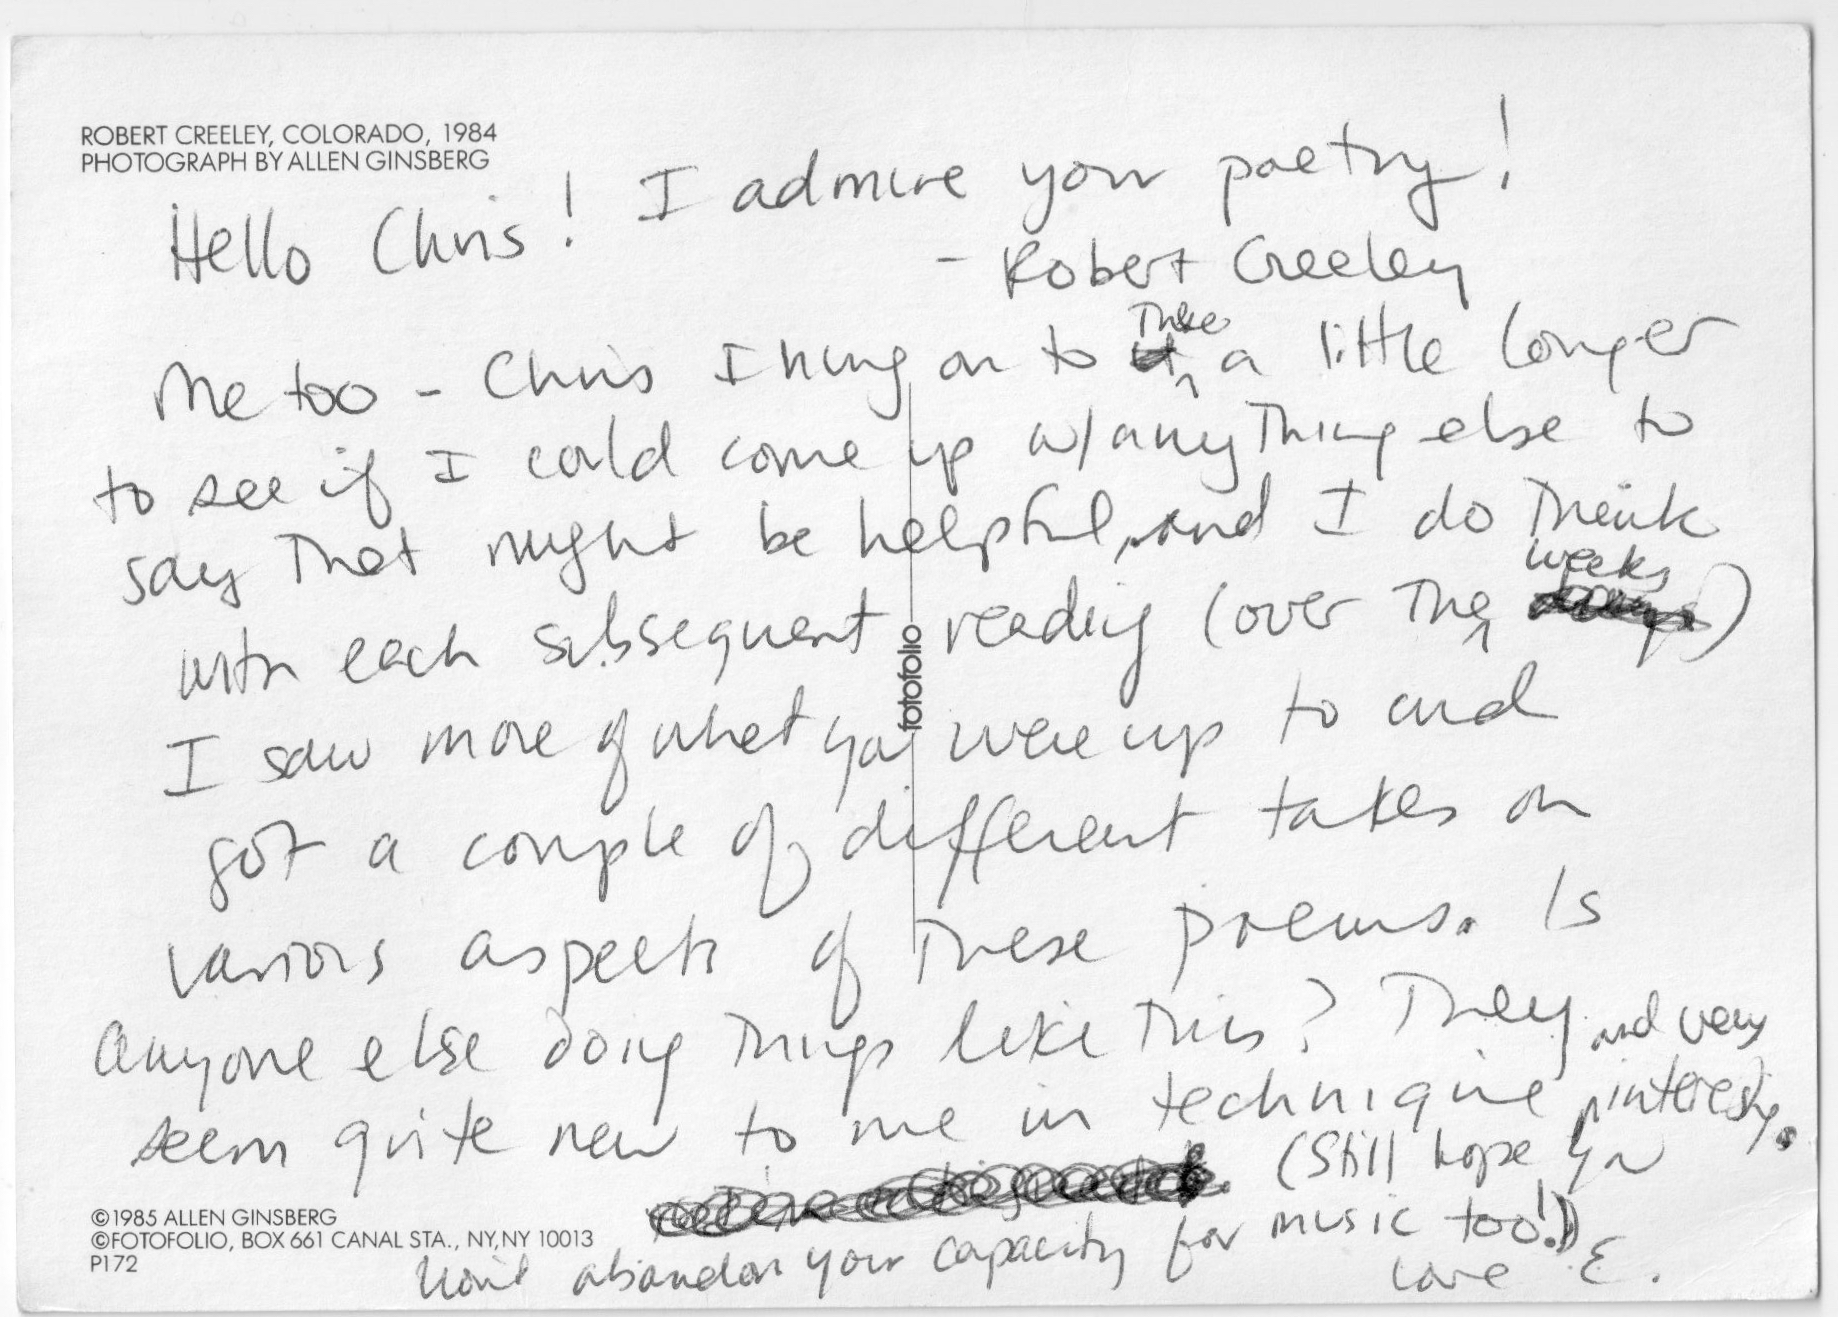 ROBERT CREELEY, COLORADO, 1984
PHOTOGRAPH BY ALLEN GINSBERG
Hello Chris! I admire your poetry!
- Robert Creeley
Me too - Chris I hung on to these a little longer
to see if I could come up w/ anything else to
say that might be helpful, and I do think
with each subsequent reading (over the weeks)
I saw more of what you were up to and
got a couple of different takes on
various aspects of these poems. Is
anyone else doing things like this? They
seem quite new to me in technique and very interesting.
(Still hope you
won't abandon your capacity for music too!))
Love E.
fotofolio
©1985 ALLEN GINSBERG
©FOTOFOLIO, BOX 661 CANAL STA., NY, NY 10013
P172